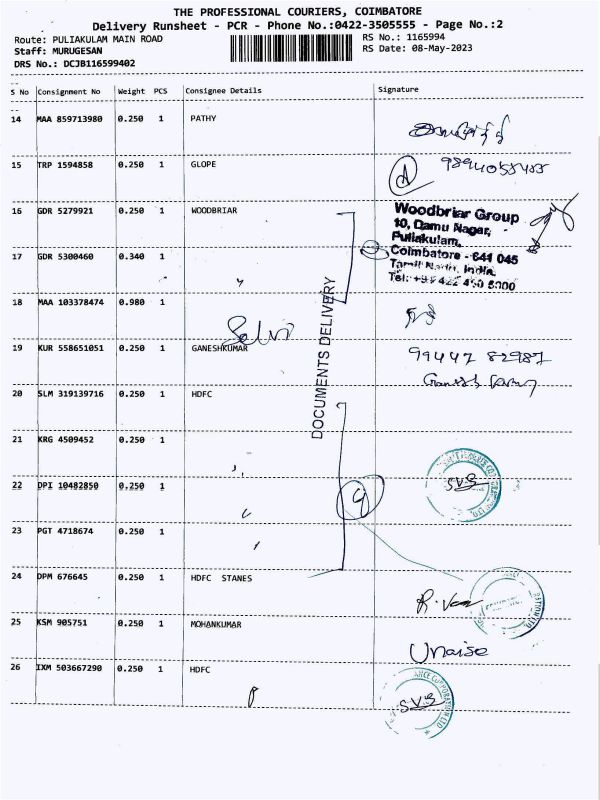 THE PROFESSIONAL COURIERS, COIMBATORE
Delivery Runsheet - PCR - Phone No.:0422-3505555 - Page No.:2
Route: PULIAKULAM MAIN ROAD RS No.: 1165994
Staff: MURUGESAN RS Date: 08-May-2023
DRS No.: DCJB116599402
S No Consignment No Weight PCS Consignee Details Signature
14 MAA 859713980 0.250 1 PATHY
15 TRP 1594858 0.250 1 GLOPE
16 GDR 5279921 0.250 1 WOODBRIAR
Woodbriar Group
10, Damu Nagar,
Puliakulam,
Coimbatore - 641 045
Tamil Nadu, India.
17 GDR 5300460 0.340 1
18 MAA 103378474 0.980 1
Selvi
DOCUMENTS DELIVERY
19 KUR 558651051 0.250 1 GANESHKUMAR 99447 82987
20 SLM 319139716 0.250 1 HDFC
21 KRG 4509452 0.250 1
22 DPI 10482850 0.250 1
SVS
9
23 PGT 4718674 0.250 1
24 DPM 676645 0.250 1 HDFC STANES
25 KSM 905751 0.250 1 MOHANKUMAR
Unaise
26 IXM 503667290 0.250 1 HDFC
SVS